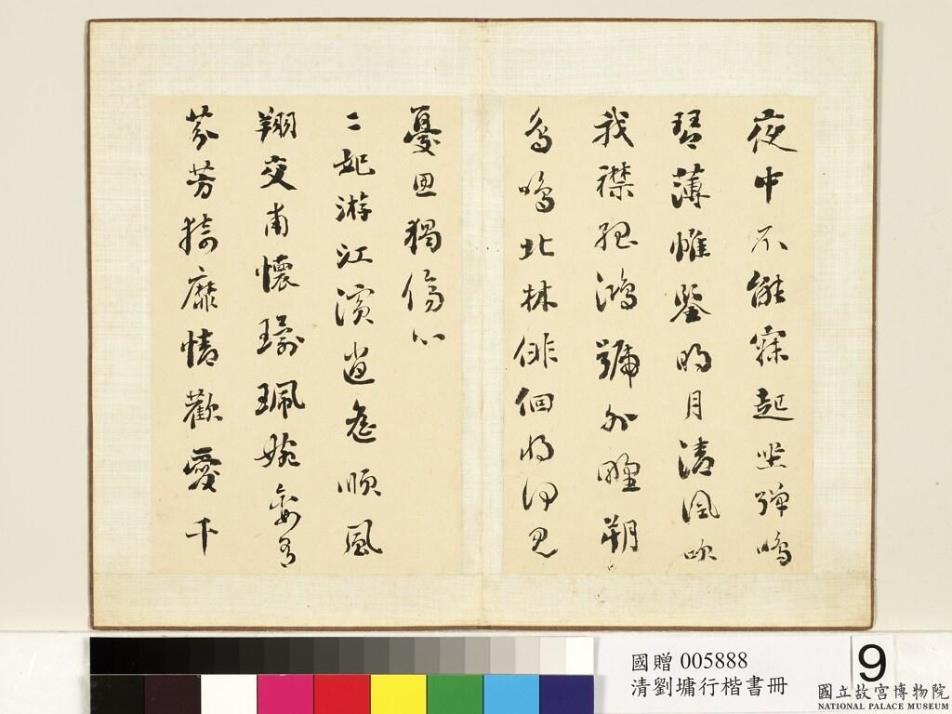 夜中不能寐起坐彈鳴
琴薄帷鑒明月清風吹
我襟孤鴻號外野朔
鳥鳴北林俳佪將何見
憂思獨傷心
二妃游江濱逍遙順風
翔交甫懷瑜珮婉孌有
芬芳猗靡情歡愛千
國贈 005888
清劉墉行楷書冊
9
國立故宮博物院
NATIONAL PALACE MUSEUM